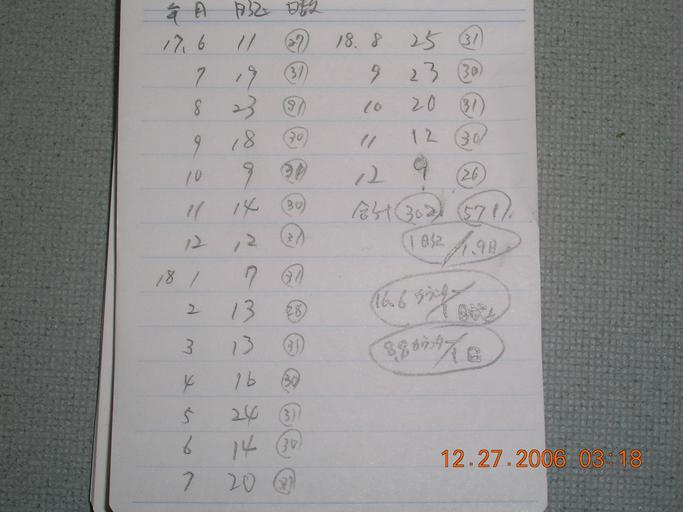 年 月 日記 日数
17.6 11 27
7 19 31
8 23 31
9 18 30
10 9 31
11 14 30
12 12 31
18 1 7 31
2 13 28
3 13 31
4 16 30
5 24 31
6 14 30
7 20 31
18.8 25 31
9 23 30
10 20 31
11 12 30
12 9 26
合計 302 571
1日記/1.9日
16.6カウンター/1日記
8.8カウンター/1日
12.27.2006 03:18